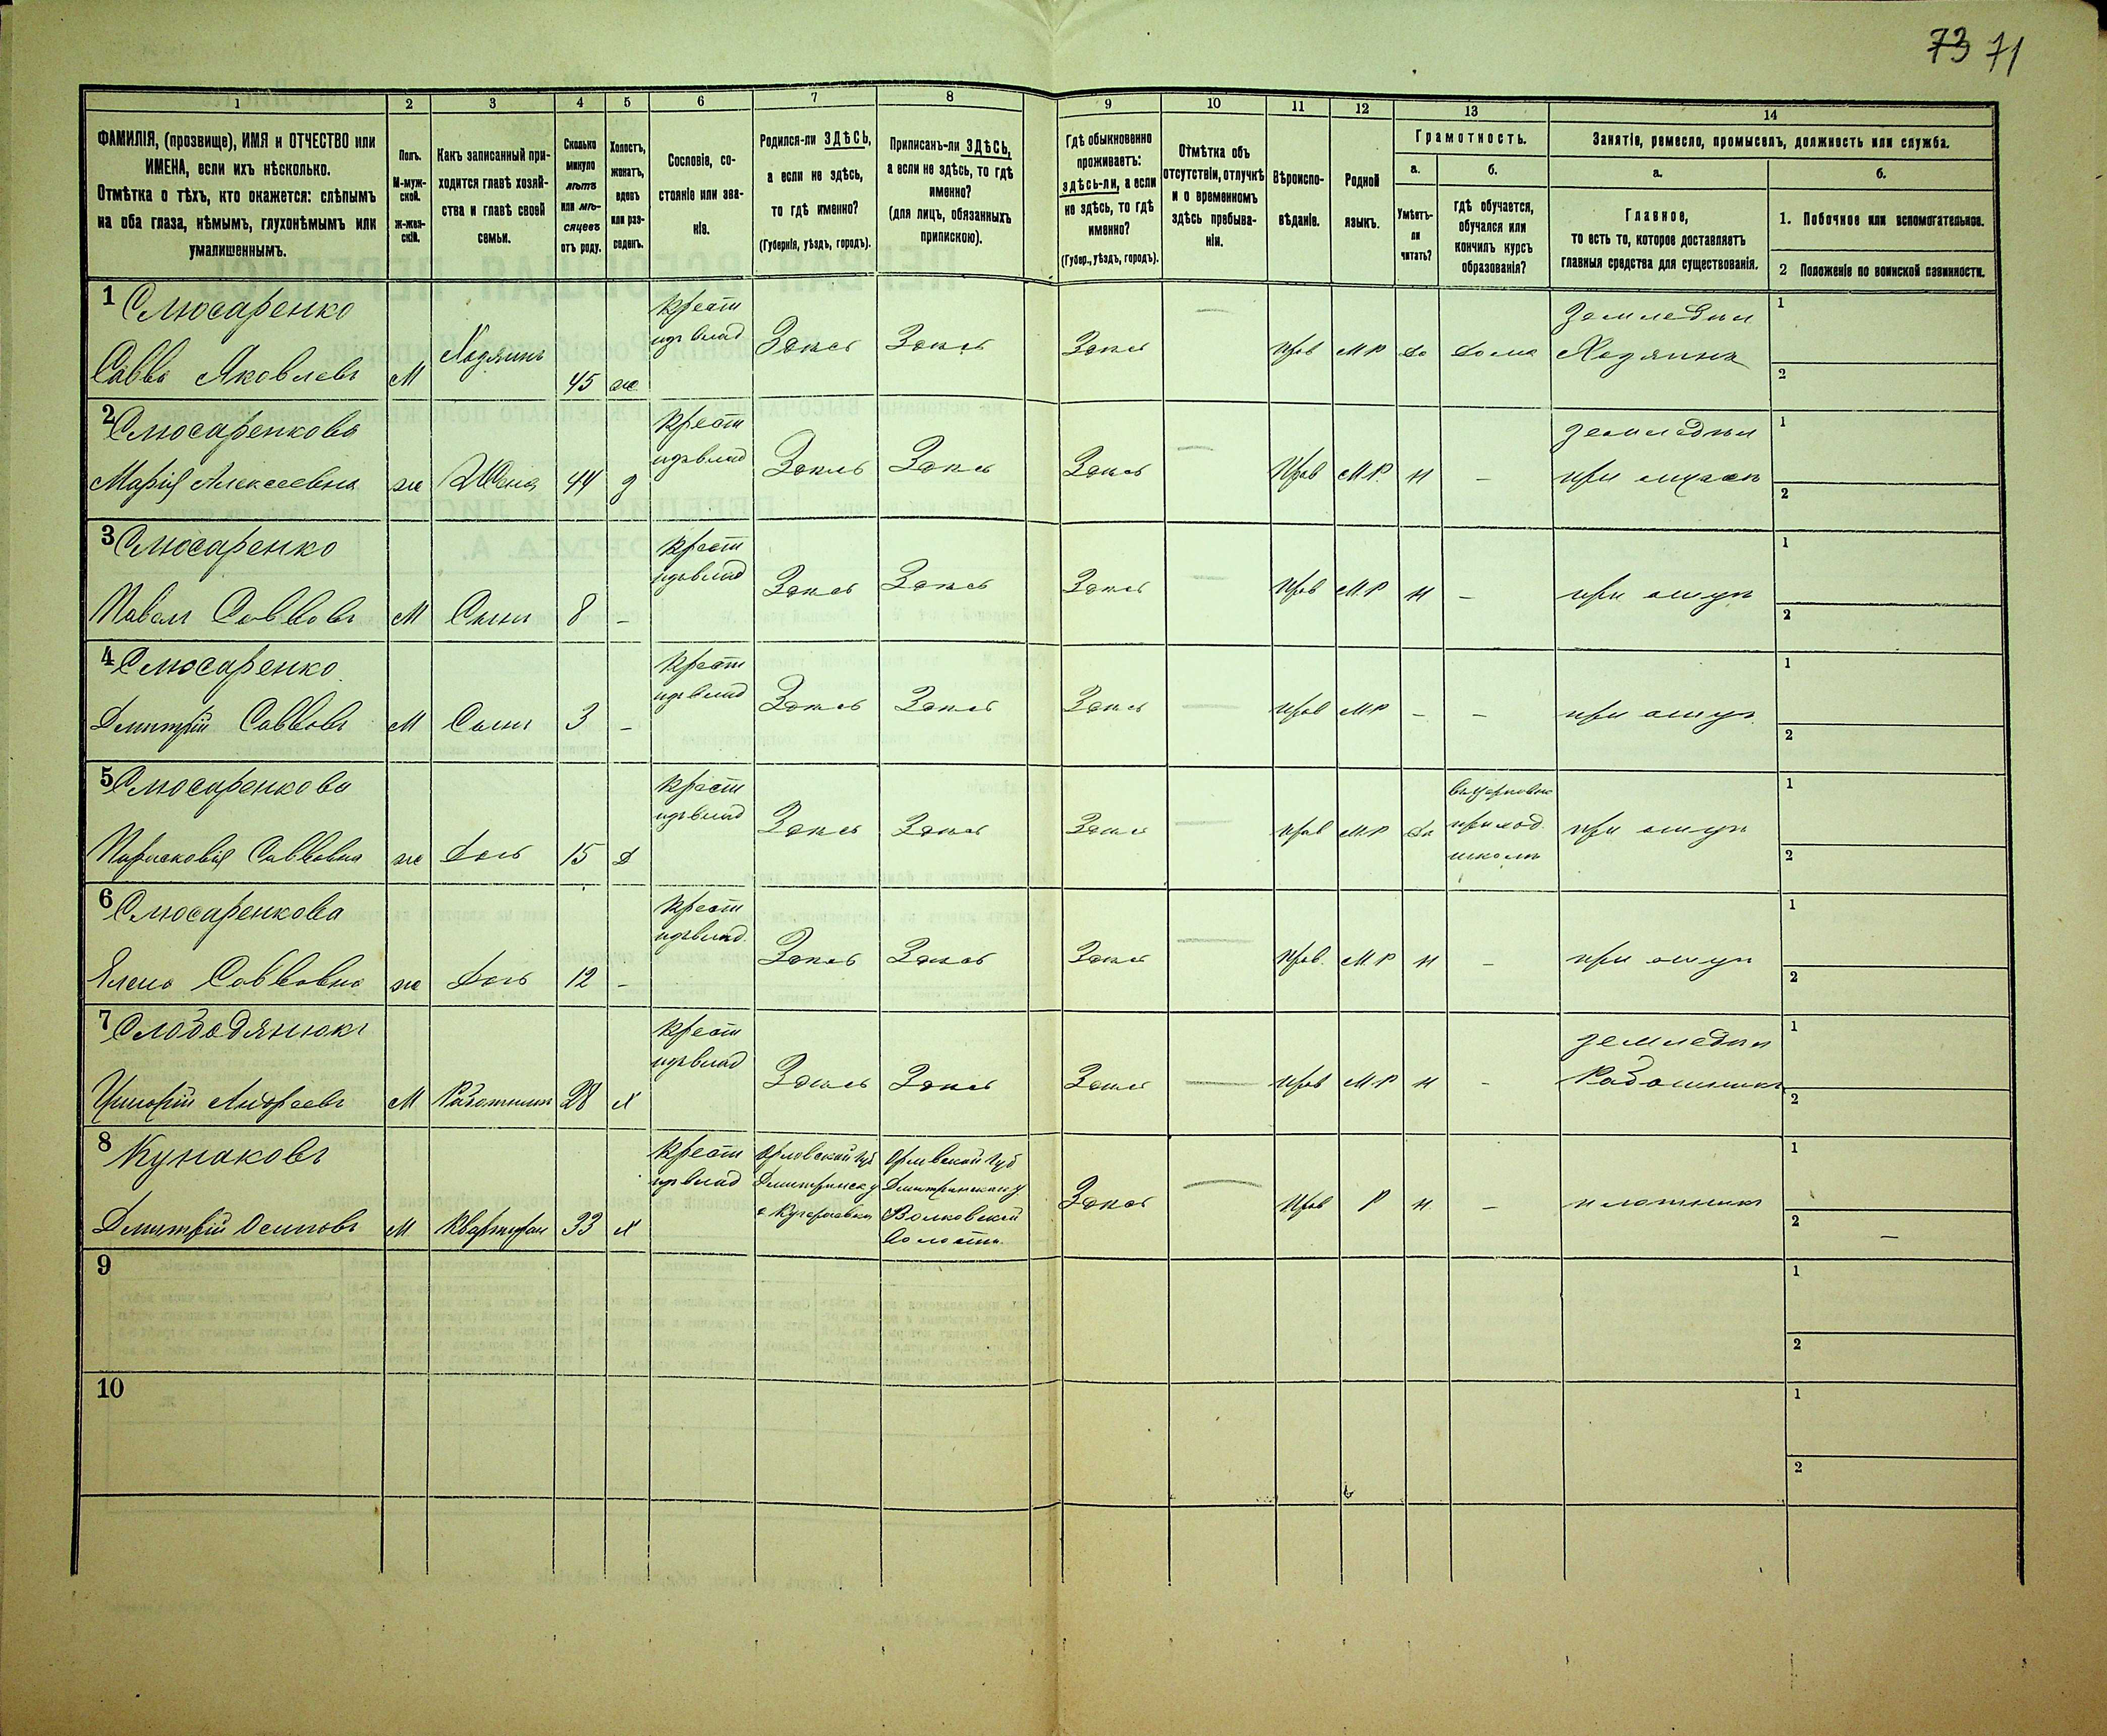 73 71
1 2 3 4 5 6 7 8 9 10 11 12 13 14
ФАМИЛІЯ, (прозвище), ИМЯ и ОТЧЕСТВО или
ИМЕНА, если ихъ нѣсколько.
Отмѣтка о тѣхъ, кто окажется: слѣпымъ
на оба глаза, нѣмымъ, глухонѣмымъ или
умалишеннымъ.
Полъ.
М-муж-
ской.
Ж-жен-
скій.
Какъ записанный при-
ходится главѣ хозяй-
ства и главѣ своей
семьи.
Сколько
минуло
лѣтъ
или мѣ-
сяцевъ
отъ роду.
Холостъ,
женатъ,
вдовъ
или раз-
веденъ.
Сословіе, со-
стояніе или зва-
ніе.
Родился-ли ЗДѢСЬ,
а если не здѣсь,
то гдѣ именно?
(Губернія, уѣздъ, городъ).
Приписанъ-ли ЗДѢСЬ,
а если не здѣсь, то гдѣ
именно?
(для лицъ, обязанныхъ
припискою).
Гдѣ обыкновенно
проживаетъ:
здѣсь-ли, а если
не здѣсь, то гдѣ
именно?
(Губер., уѣздъ, городъ).
Отмѣтка объ
отсутствіи, отлучкѣ
и о временномъ
здѣсь пребыва-
ніи.
Вѣроиспо-
вѣданіе.
Родной
языкъ.
Грамотность.
а.
Умѣетъ-
ли
читать?
б.
гдѣ обучается,
обучался или
кончилъ курсъ
образованія?
Занятіе, ремесло, промыселъ, должность или служба.
а.
Главное,
то есть то, которое доставляетъ
главныя средства для существованія.
б.
1. Побочное или вспомогательное.
2 Положеніе по воинской повинности.
1 Слюсаренко крест земледѣл 1
изъ влад
Савва Яковлевъ М Хозяинъ 45 ж Здѣсь Здѣсь Здѣсь — Прав М Р да дома Хозяинъ 2
2 Слюсаренкова крест земледѣл 1
изъ влад
Марія Алексеевна ж Жена 44 з Здѣсь Здѣсь Здѣсь — Прав М.Р. н – при мужѣ 2
3 Слюсаренко крест 1
изъ влад
Павелъ Саввовъ М Сынъ 8 – Здѣсь Здѣсь Здѣсь — Прав М.Р н – при отцѣ 2
4 Слюсаренко крест 1
изъ влад
Дмитрій Саввовъ М Сынъ 3 – Здѣсь Здѣсь Здѣсь — Прав М Р – – при отцѣ 2
5 Слюсаренкова крест въ церковно 1
изъ влад приход.
школѣ
Парасковія Саввовна ж Дочь 15 Д Здѣсь Здѣсь Здѣсь — Прав М.Р да при отцѣ 2
6 Слюсаренкова крест 1
изъ влад.
Елена Саввовна ж Дочь 12 – Здѣсь Здѣсь Здѣсь — Прав. М. Р н – при отцѣ 2
7 Слободянюкъ крест земледѣл 1
изъ влад
Григорій Андреевъ М Работникъ 28 х Здѣсь Здѣсь Здѣсь — Прав М Р н – Работникъ 2
8 Кунаковъ крест Орловской губ Орловской губ 1
изъ влад Дмитринск у Дмитринскаго у
Волковской
волости.
Дмитрій Осиповъ М Квартиран 33 х Здѣсь — Прав Р н – плотникъ 2 –
9 1
2
10 1
2